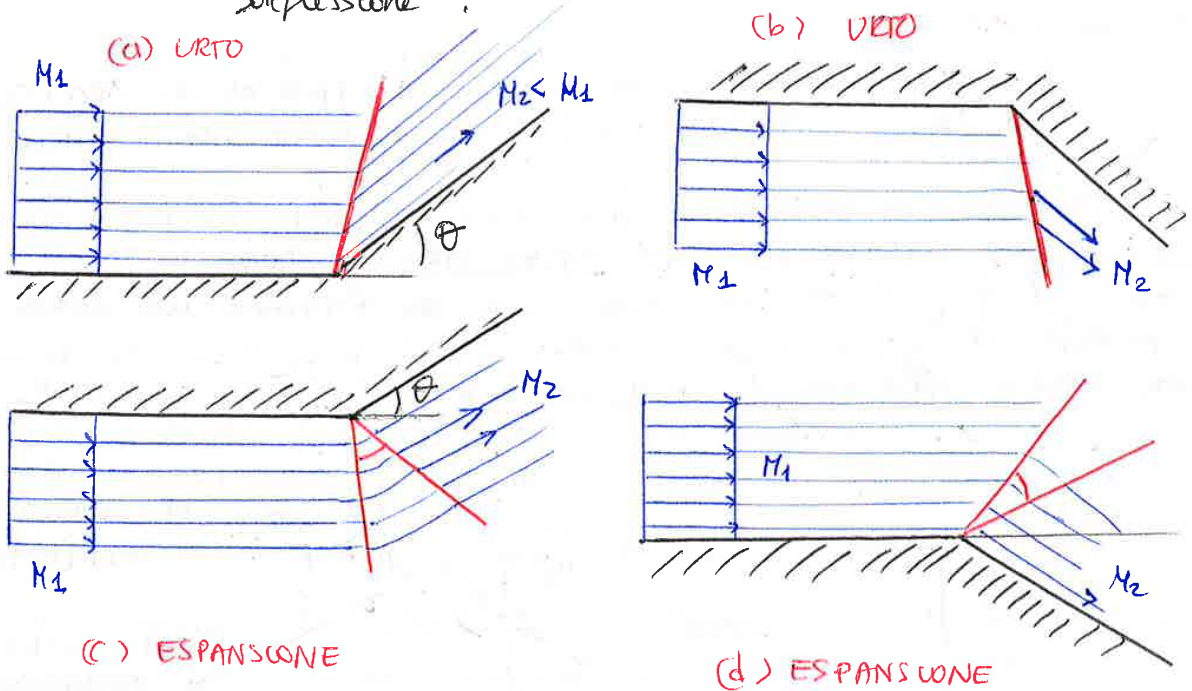 (a) URTO
M1
M2 < M1
θ
(b) URTO
M1
M2
θ
M2
M1
(c) ESPANSIONE
M1
M2
(d) ESPANSIONE